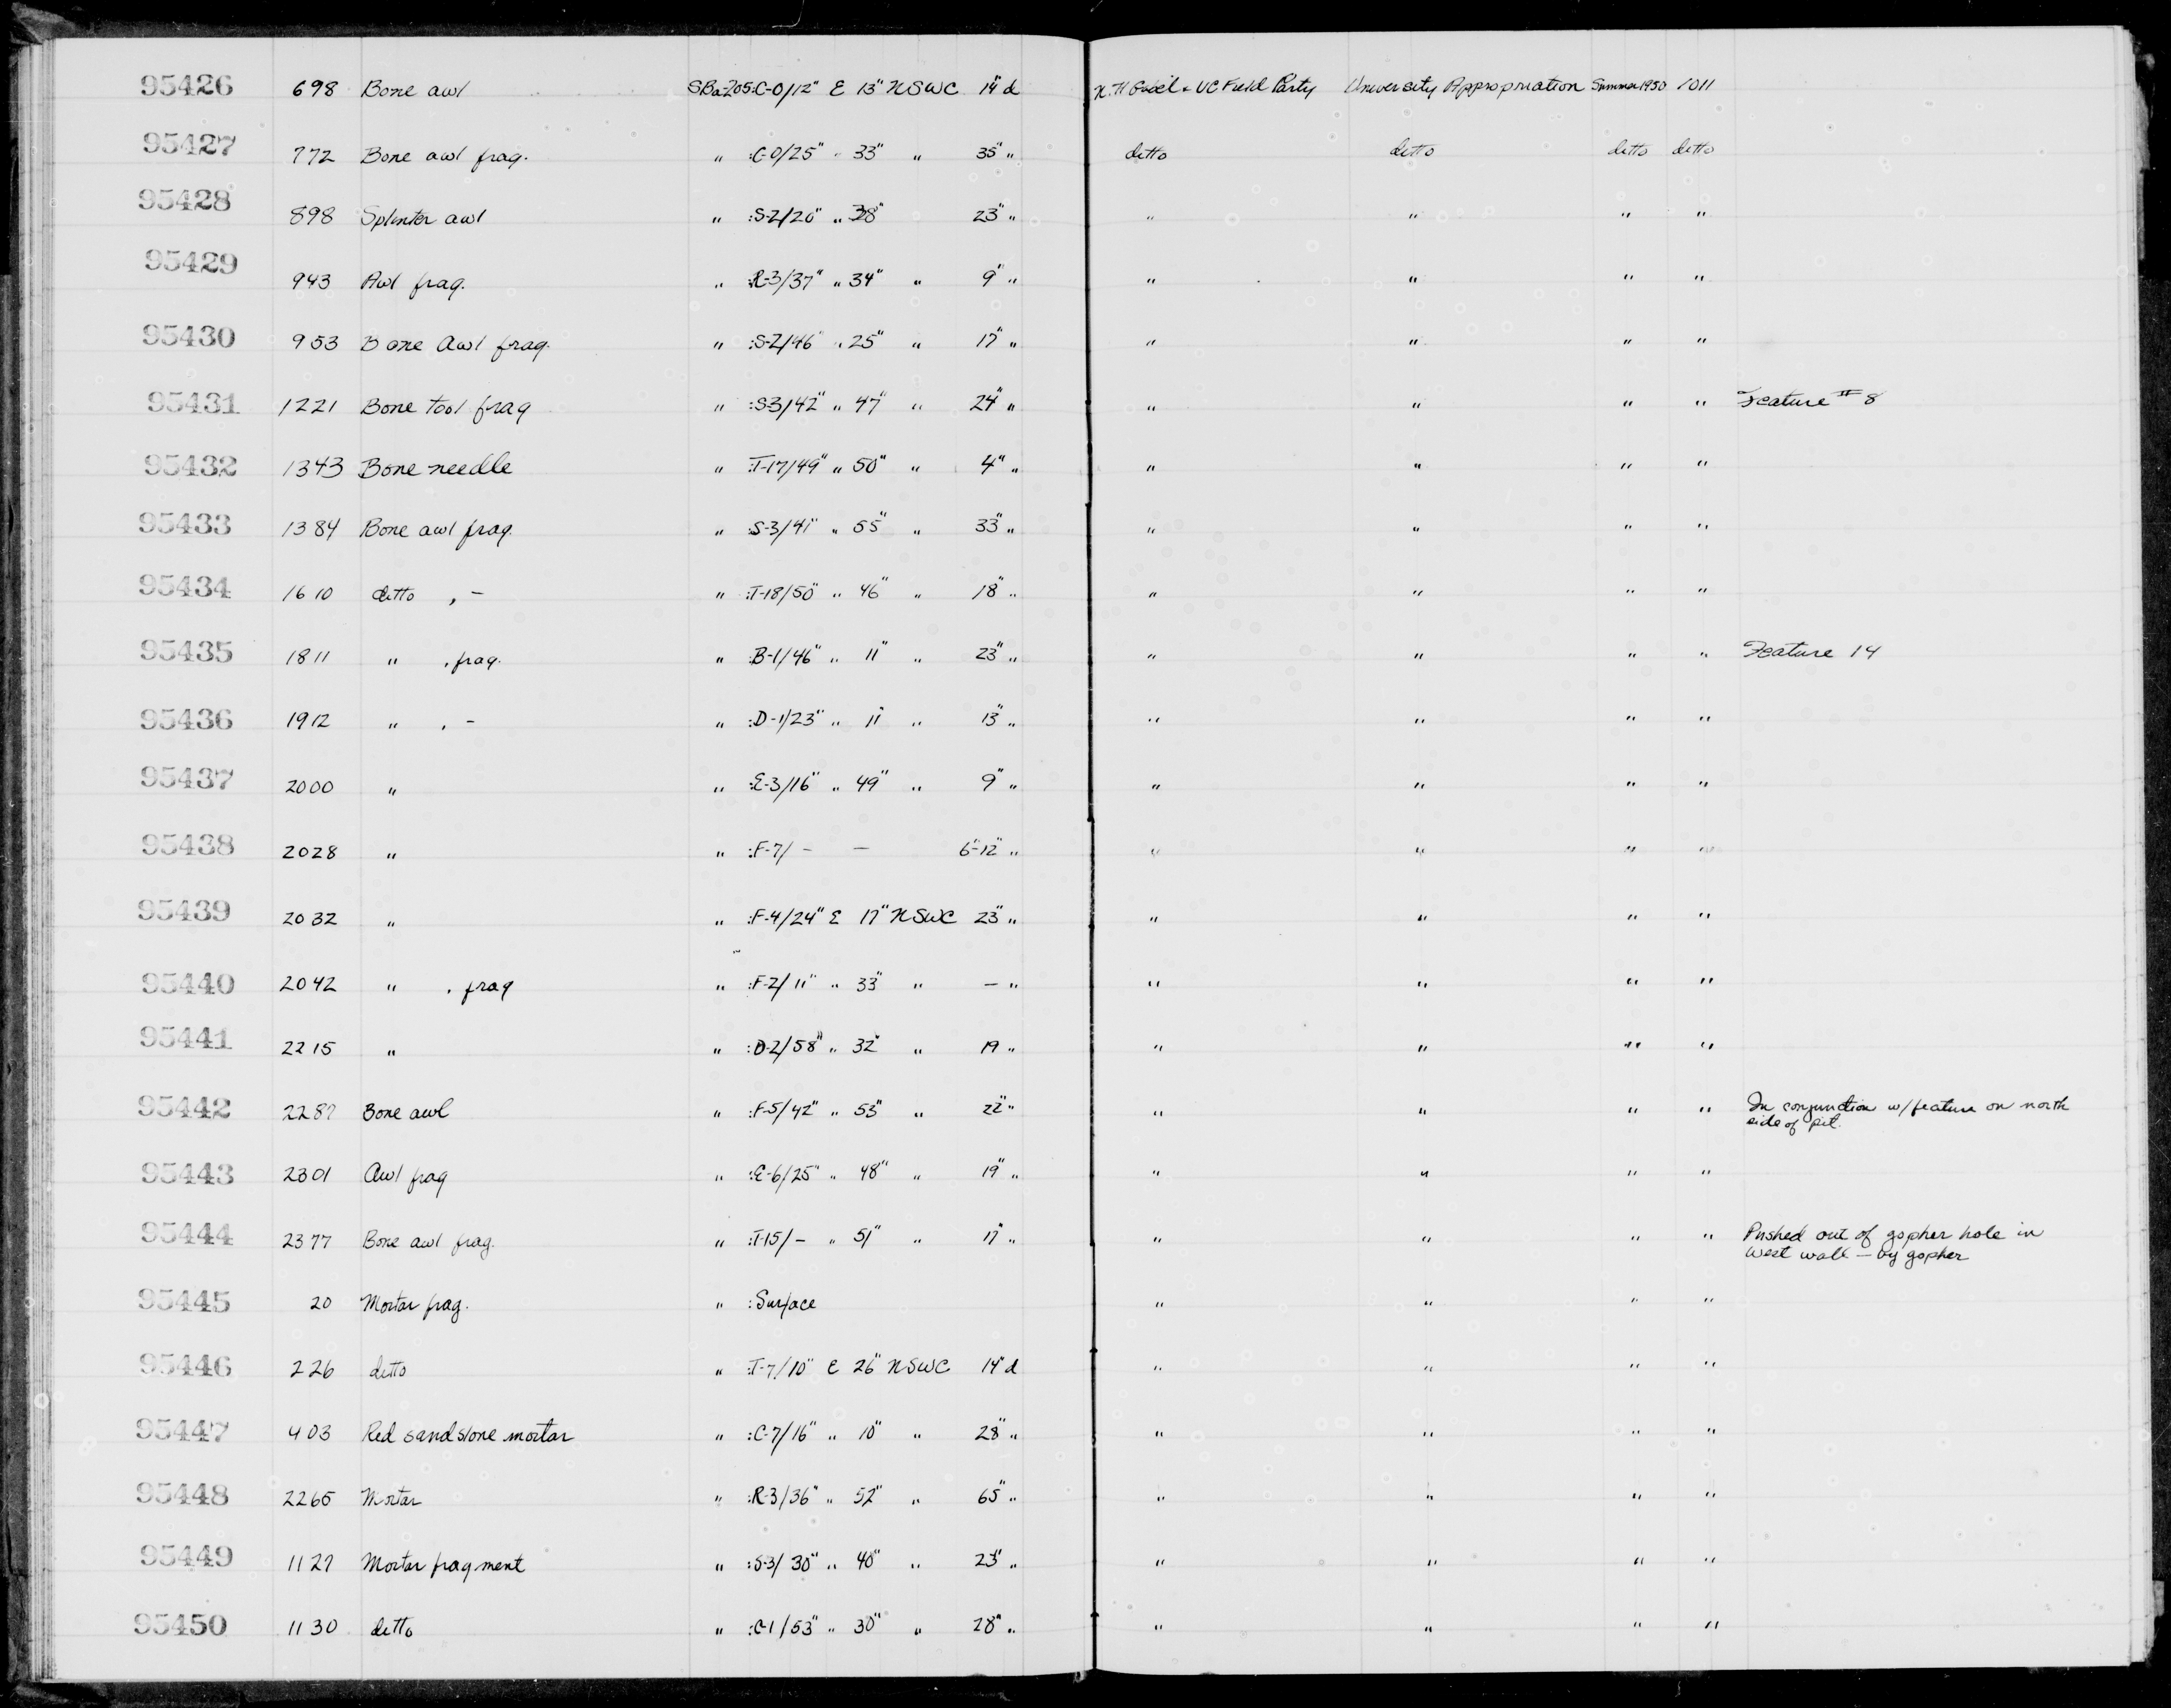 95426 698 Bone awl SBa-205:C-0/12" E 13" NSWC 14" d N.H. & UC Field Party University Appropriation Summer 1950 1011
95427 772 Bone awl frag. " :C-0/25" " 33" " 35" " ditto ditto ditto ditto
95428 898 Splinter awl " :S-2/20" " 38" " 23" " " " " "
95429 943 Awl frag. " :R-3/37" " 34" " 9" " " " " "
95430 953 Bone Awl frag. " :S-2/46" " 25" " 17" " " " " "
95431 1221 Bone tool frag " :S-3/42" " 47" " 24" " " " " " Feature # 8
95432 1343 Bone needle " :T-17/49" " 50" " 4" " " " " "
95433 1384 Bone awl frag. " :S-3/41" " 55" " 33" " " " " "
95434 1610 ditto , - " :T-18/50" " 46" " 18" " " " " "
95435 1811 " , frag. " :B-1/46" " 11" " 23" " " " " " Feature 14
95436 1912 " , - " :D-1/23" " 11" " 13" " " " " "
95437 2000 " " :E-3/16" " 49" " 9" " " " " "
95438 2028 " " :F-7/ - - 6"-12" " " " " "
95439 2032 " " :F-4/24" E 17" NSWC 23" " " " " "
95440 2042 " , frag " :F-2/11" " 33" " - " " " " "
95441 2215 " " :D-2/58" " 32" " 19 " " " " "
95442 2287 Bone awl " :F-5/42" " 53" " 22" " " " " " In conjunction w/feature on north
side of pit.
95443 2301 Awl frag " :E-6/25" " 48" " 19" " " " " "
95444 2377 Bone awl frag. " :T-15/- " 51" " 17" " " " " " Pushed out of gopher hole in
west wall — by gopher
95445 20 Mortar frag. " :Surface " " " "
95446 226 ditto " :T-7/10" E 26" NSWC 14" d " " " "
95447 403 Red sandstone mortar " :C-7/16" " 10" " 28" " " " " "
95448 2265 Mortar " :R-3/36" " 52" " 65" " " " " "
95449 1127 Mortar fragment " :S-3/30" " 40" " 23" " " " " "
95450 1130 ditto " :C-1/53" " 30" " 28" " " " " "